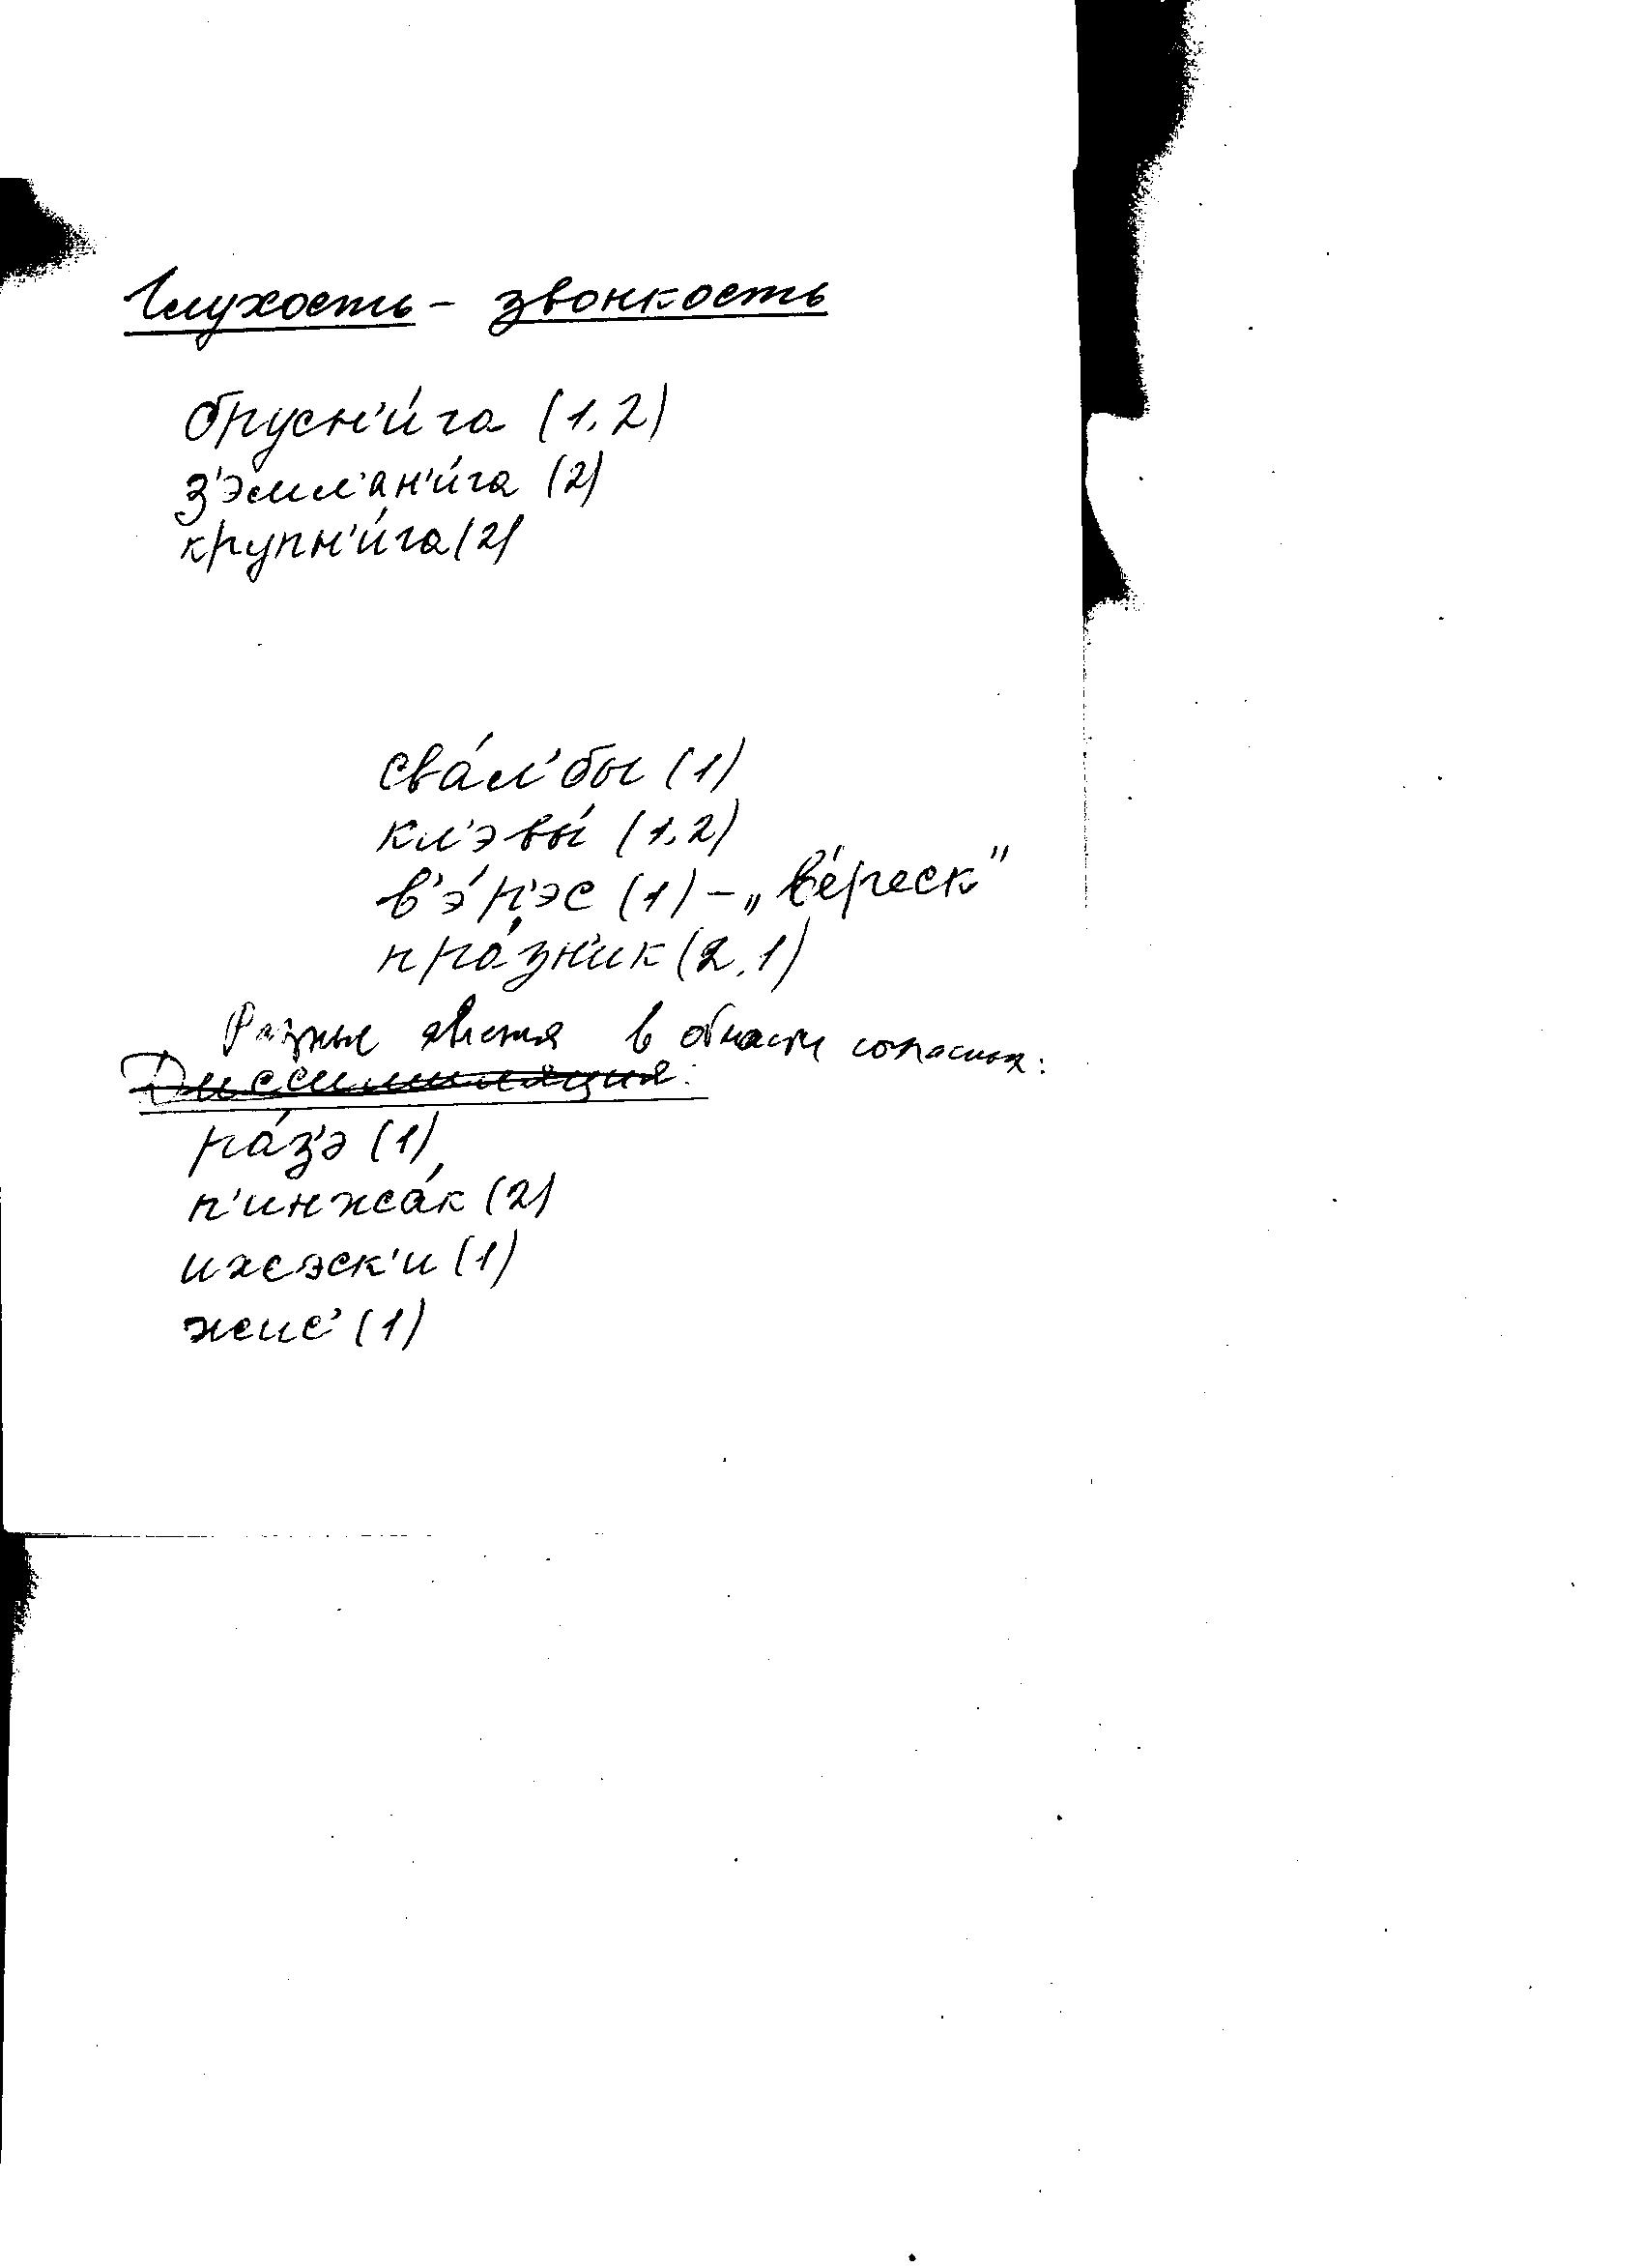 Глухость – звонкость
брусн'и́га (1,2)
з'эмл'ан'и́га (2)
крупн'и́га (2)
сва́л'бы (1)
кл'эвы́ (1,2)
в'э́р'эс (1) – „ве́реск"
пра́зн'ик (2,1)
Разные явления в области согласных:
Диссимиляция:
ра́з'э (1)
п'инжа́к (2)
ихсэск'и (1)
жис' (1)